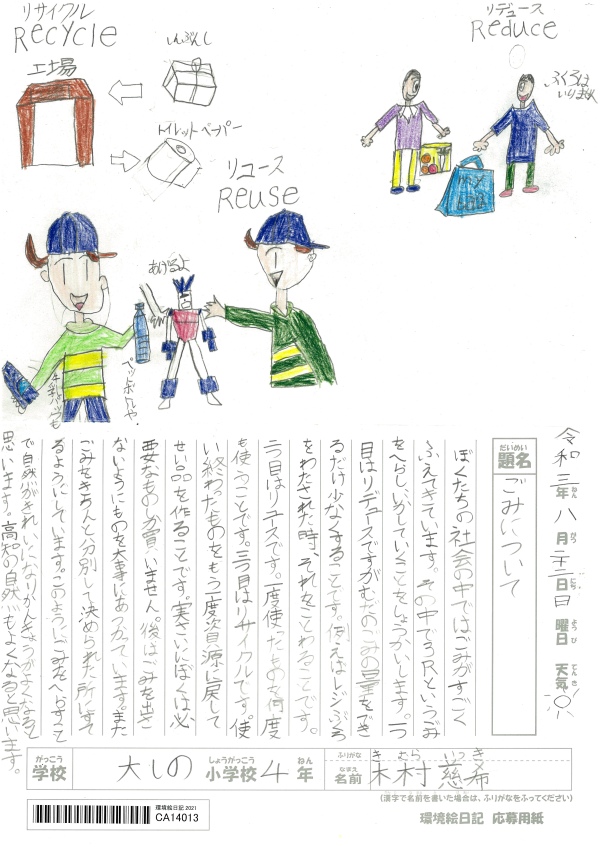 リサイクル
Recycle
工場
しんぶんし
トイレットペーパー
リデュース
Reduce
ふくろは
いりません
リユース
Reuse
あげるよ
ペットボトルや
牛乳パックも
令和三年八月二十二日日曜日天気
題名
ごみについて
ぼくたちの社会の中ではごみがすごく
ふえてきています。その中で3Rというごみ
をへらし、いかしていくことをしょうかいします。一つ
目はリデュースですがむだのごみの量をでき
るだけ少なくすることです。例えばレジぶくろ
をわたされた時、それをことわることです。
二つ目はリユースです。一度使ったものを何度
も使うことです。三つ目はリサイクルです。使
い終わったものをもう一度資源に戻して
せい品を作ることです。実さいにぼくは必
要なものしか買いません。後はごみを出さ
ないようにものを大事にあつかっています。また
ごみをきちんと分別して決められた所にすて
るようにしています。このようにごみをへらすこと
で自然がきれいになりかんきょうがよくなると
思います。高知の自然もよくなると思います。
がっこう
学校
大しの
しょうがっこう
小学校
4
ねん
年
ふりがな
きむらいつき
なまえ
名前
木村慈希
(漢字で名前を書いた場合は、ふりがなをふってください)
環境絵日記2021
CA14013
環境絵日記 応募用紙